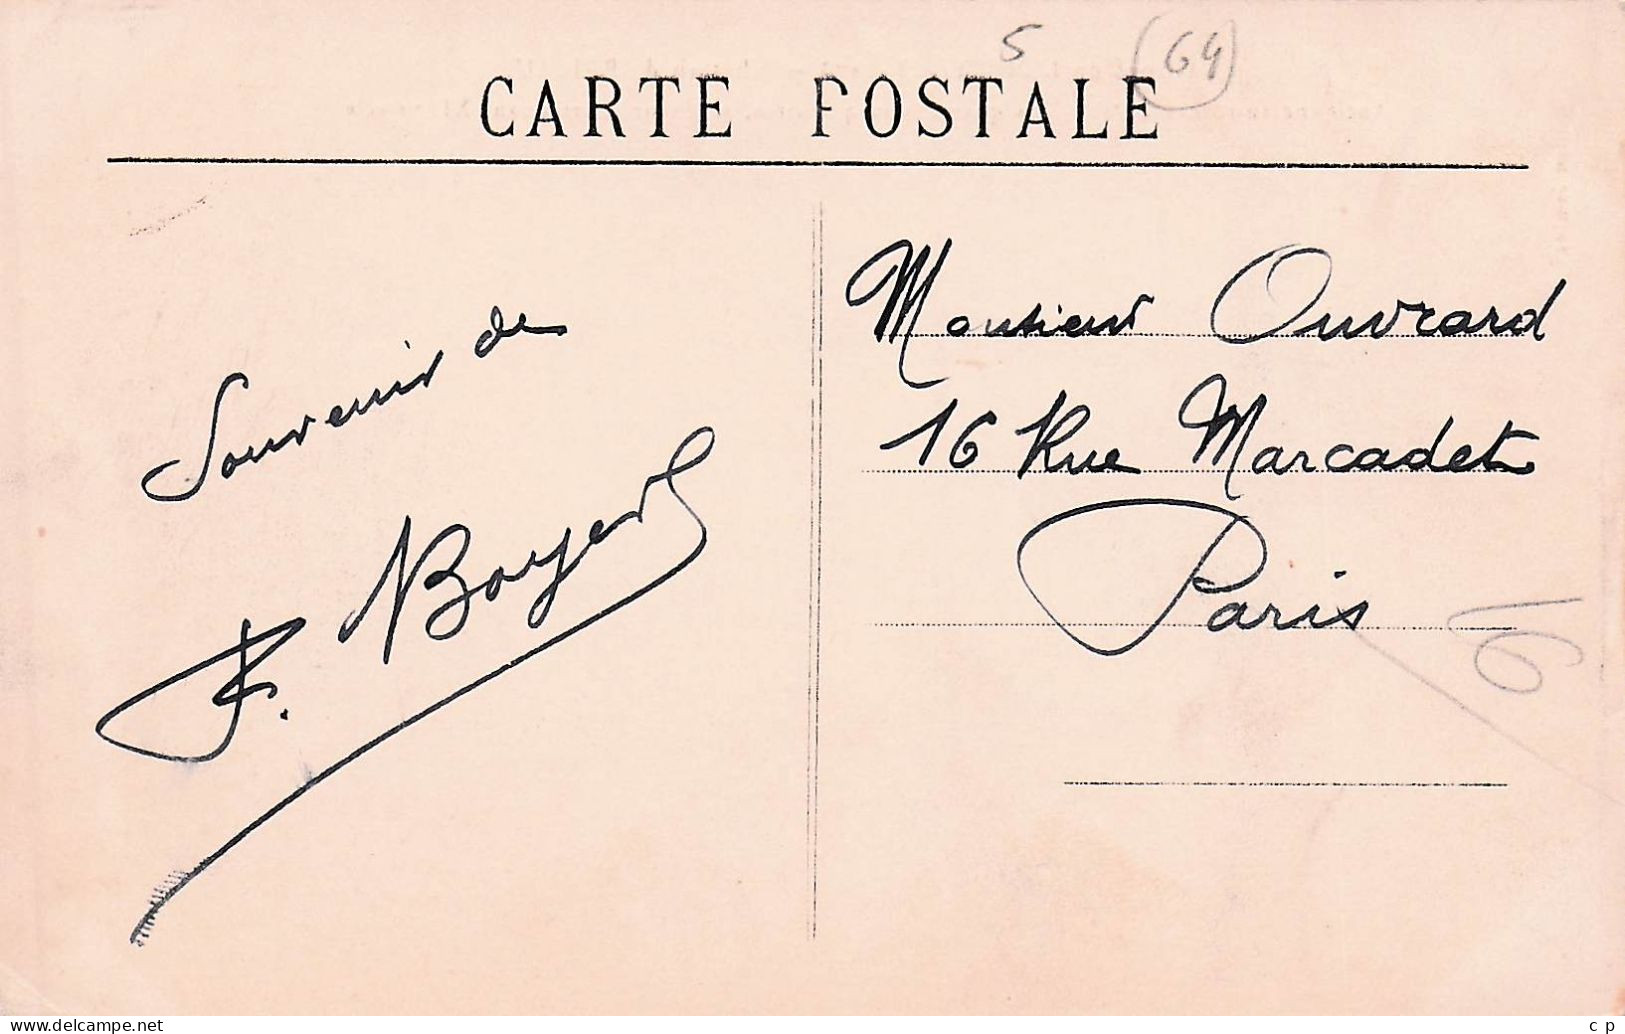 5
(64)
CARTE POSTALE
Souvenir de
F. Boyer
Monsieur Ouvrard
16 Rue Marcadet
Paris
16
www.delcampe.net
c p